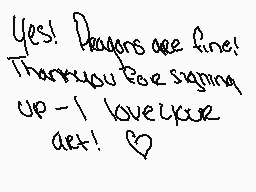 Yes! Dragons are fine!
Thank you for signing
up - I love your
art! ♡